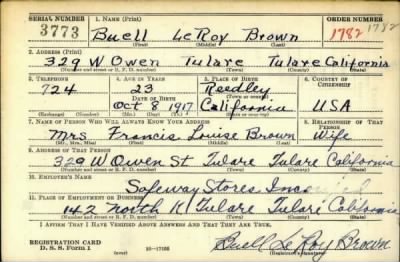 SERIAL NUMBER 1. NAME (Print) ORDER NUMBER
3773 Buell LeRoy Brown 1782 1782
(First) (Middle) (Last)
2. ADDRESS (Print)
329 W Owen Tulare Tulare California
(Number and street or R. F. D. number) (Town) (County) (State)
3. TELEPHONE 4. AGE IN YEARS 5. PLACE OF BIRTH 6. COUNTRY OF CITIZENSHIP
724 23 Reedley
DATE OF BIRTH (Town or county)
Oct 8 1917 California USA
(Exchange) (Number) (Mo.) (Day) (Yr.) (State or country)
7. NAME OF PERSON WHO WILL ALWAYS KNOW YOUR ADDRESS 8. RELATIONSHIP OF THAT PERSON
Mrs Francis Louise Brown Wife
(Mr., Mrs., Miss) (First) (Middle) (Last)
9. ADDRESS OF THAT PERSON
329 W Owen St Tulare Tulare California
(Number and street or R. F. D. number) (Town) (County) (State)
10. EMPLOYER'S NAME
Safeway Stores Inc
11. PLACE OF EMPLOYMENT OR BUSINESS
142 North K Tulare Tulare California
(Number and street or R. F. D. number) (Town) (County) (State)
I AFFIRM THAT I HAVE VERIFIED ABOVE ANSWERS AND THAT THEY ARE TRUE.
REGISTRATION CARD
D. S. S. Form 1 16-17105 Buell LeRoy Brown
(Registrant's signature)